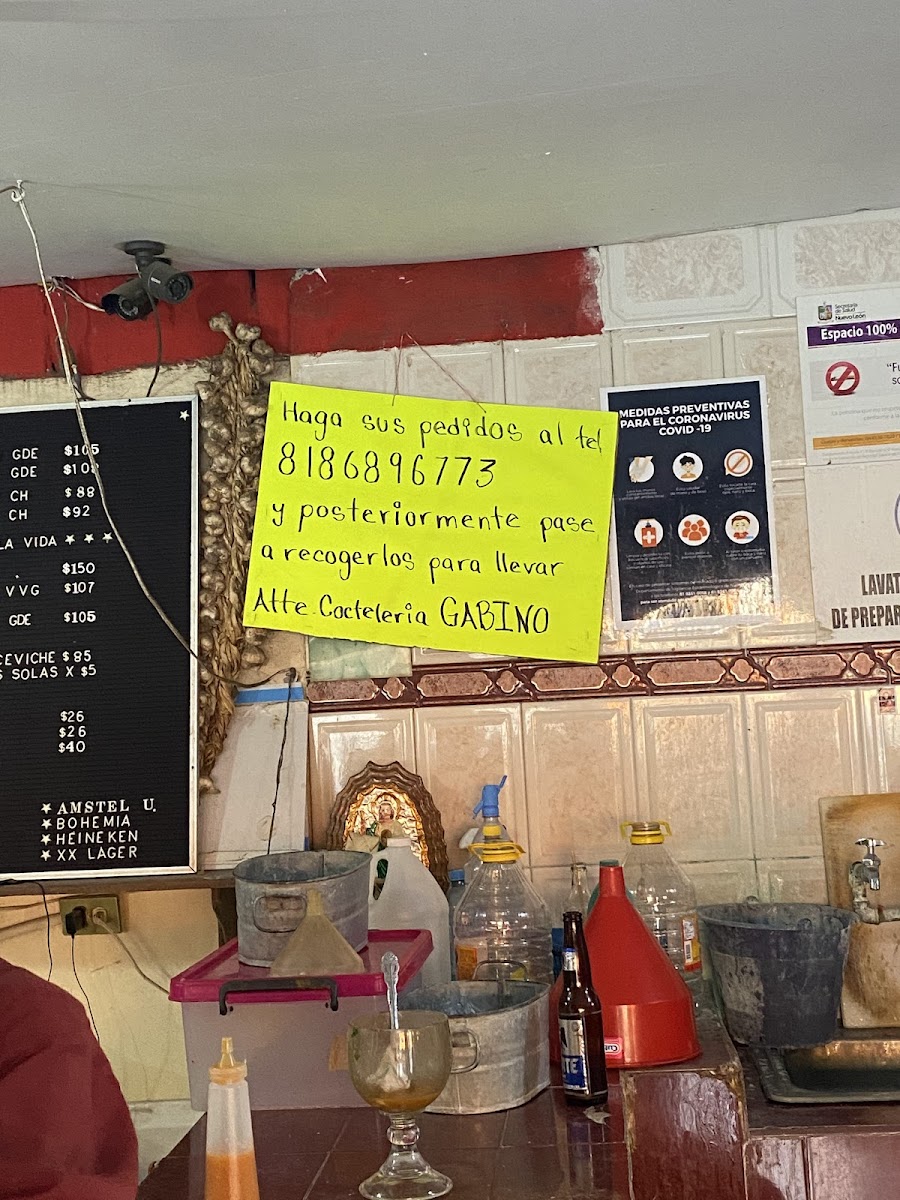 GDE $105
GDE $108
CH $88
CH $92
LA VIDA ★ ★ ★
$150
VVG $107
GDE $105
CEVICHE $85
SOLAS X $5
$26
$26
$40
★ AMSTEL U.
★ BOHEMIA
★ HEINEKEN
★ XX LAGER
Haga sus pedidos al tel
8186896773
y posteriormente pase
a recogerlos para llevar
Atte. Cocteleria GABINO
MEDIDAS PREVENTIVAS
PARA EL CORONAVIRUS
COVID -19
Secretaría
de Salud
Nuevo León
Espacio 100%
LAVAT
DE PREPAR